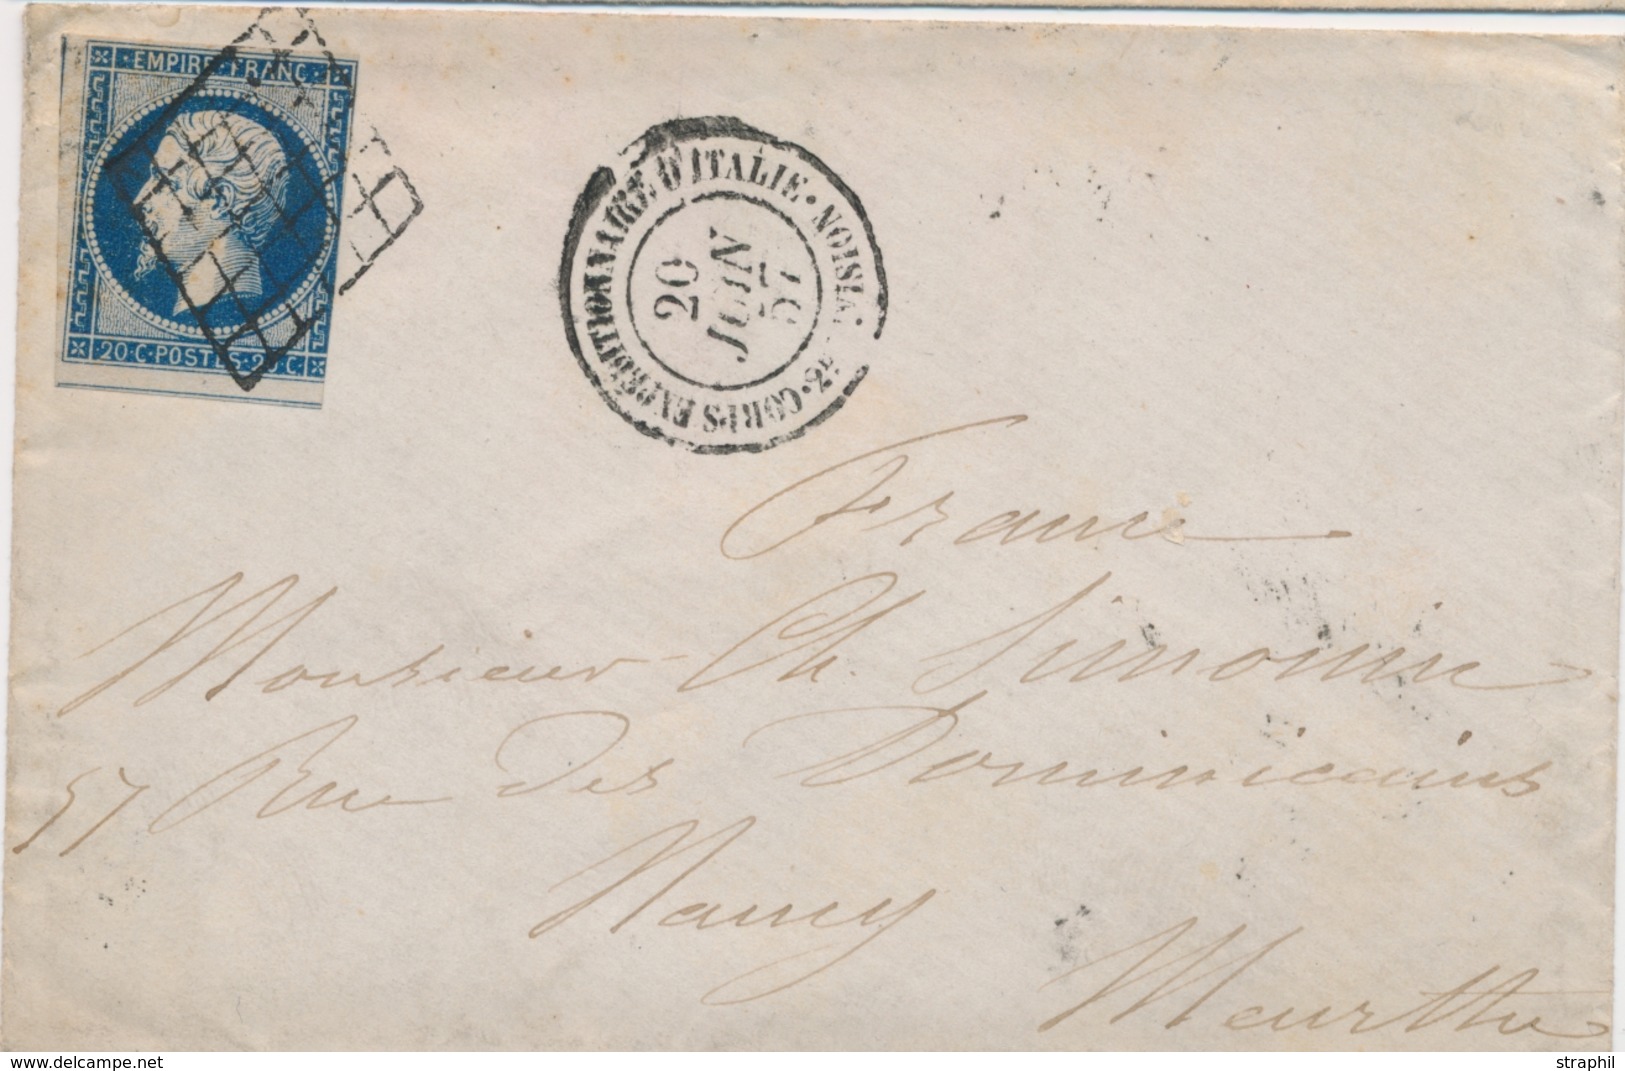 ·EMPIRE·FRANC·
20·C·POSTES·20·C·
CORPS EXPÉDITIONNAIRE D'ITALIE·
20
JUIN
57
France
Monsieur Ch. Simonin
57 Rue des Dominicains
Nancy
Meurthe
www.delcampe.net
straphil